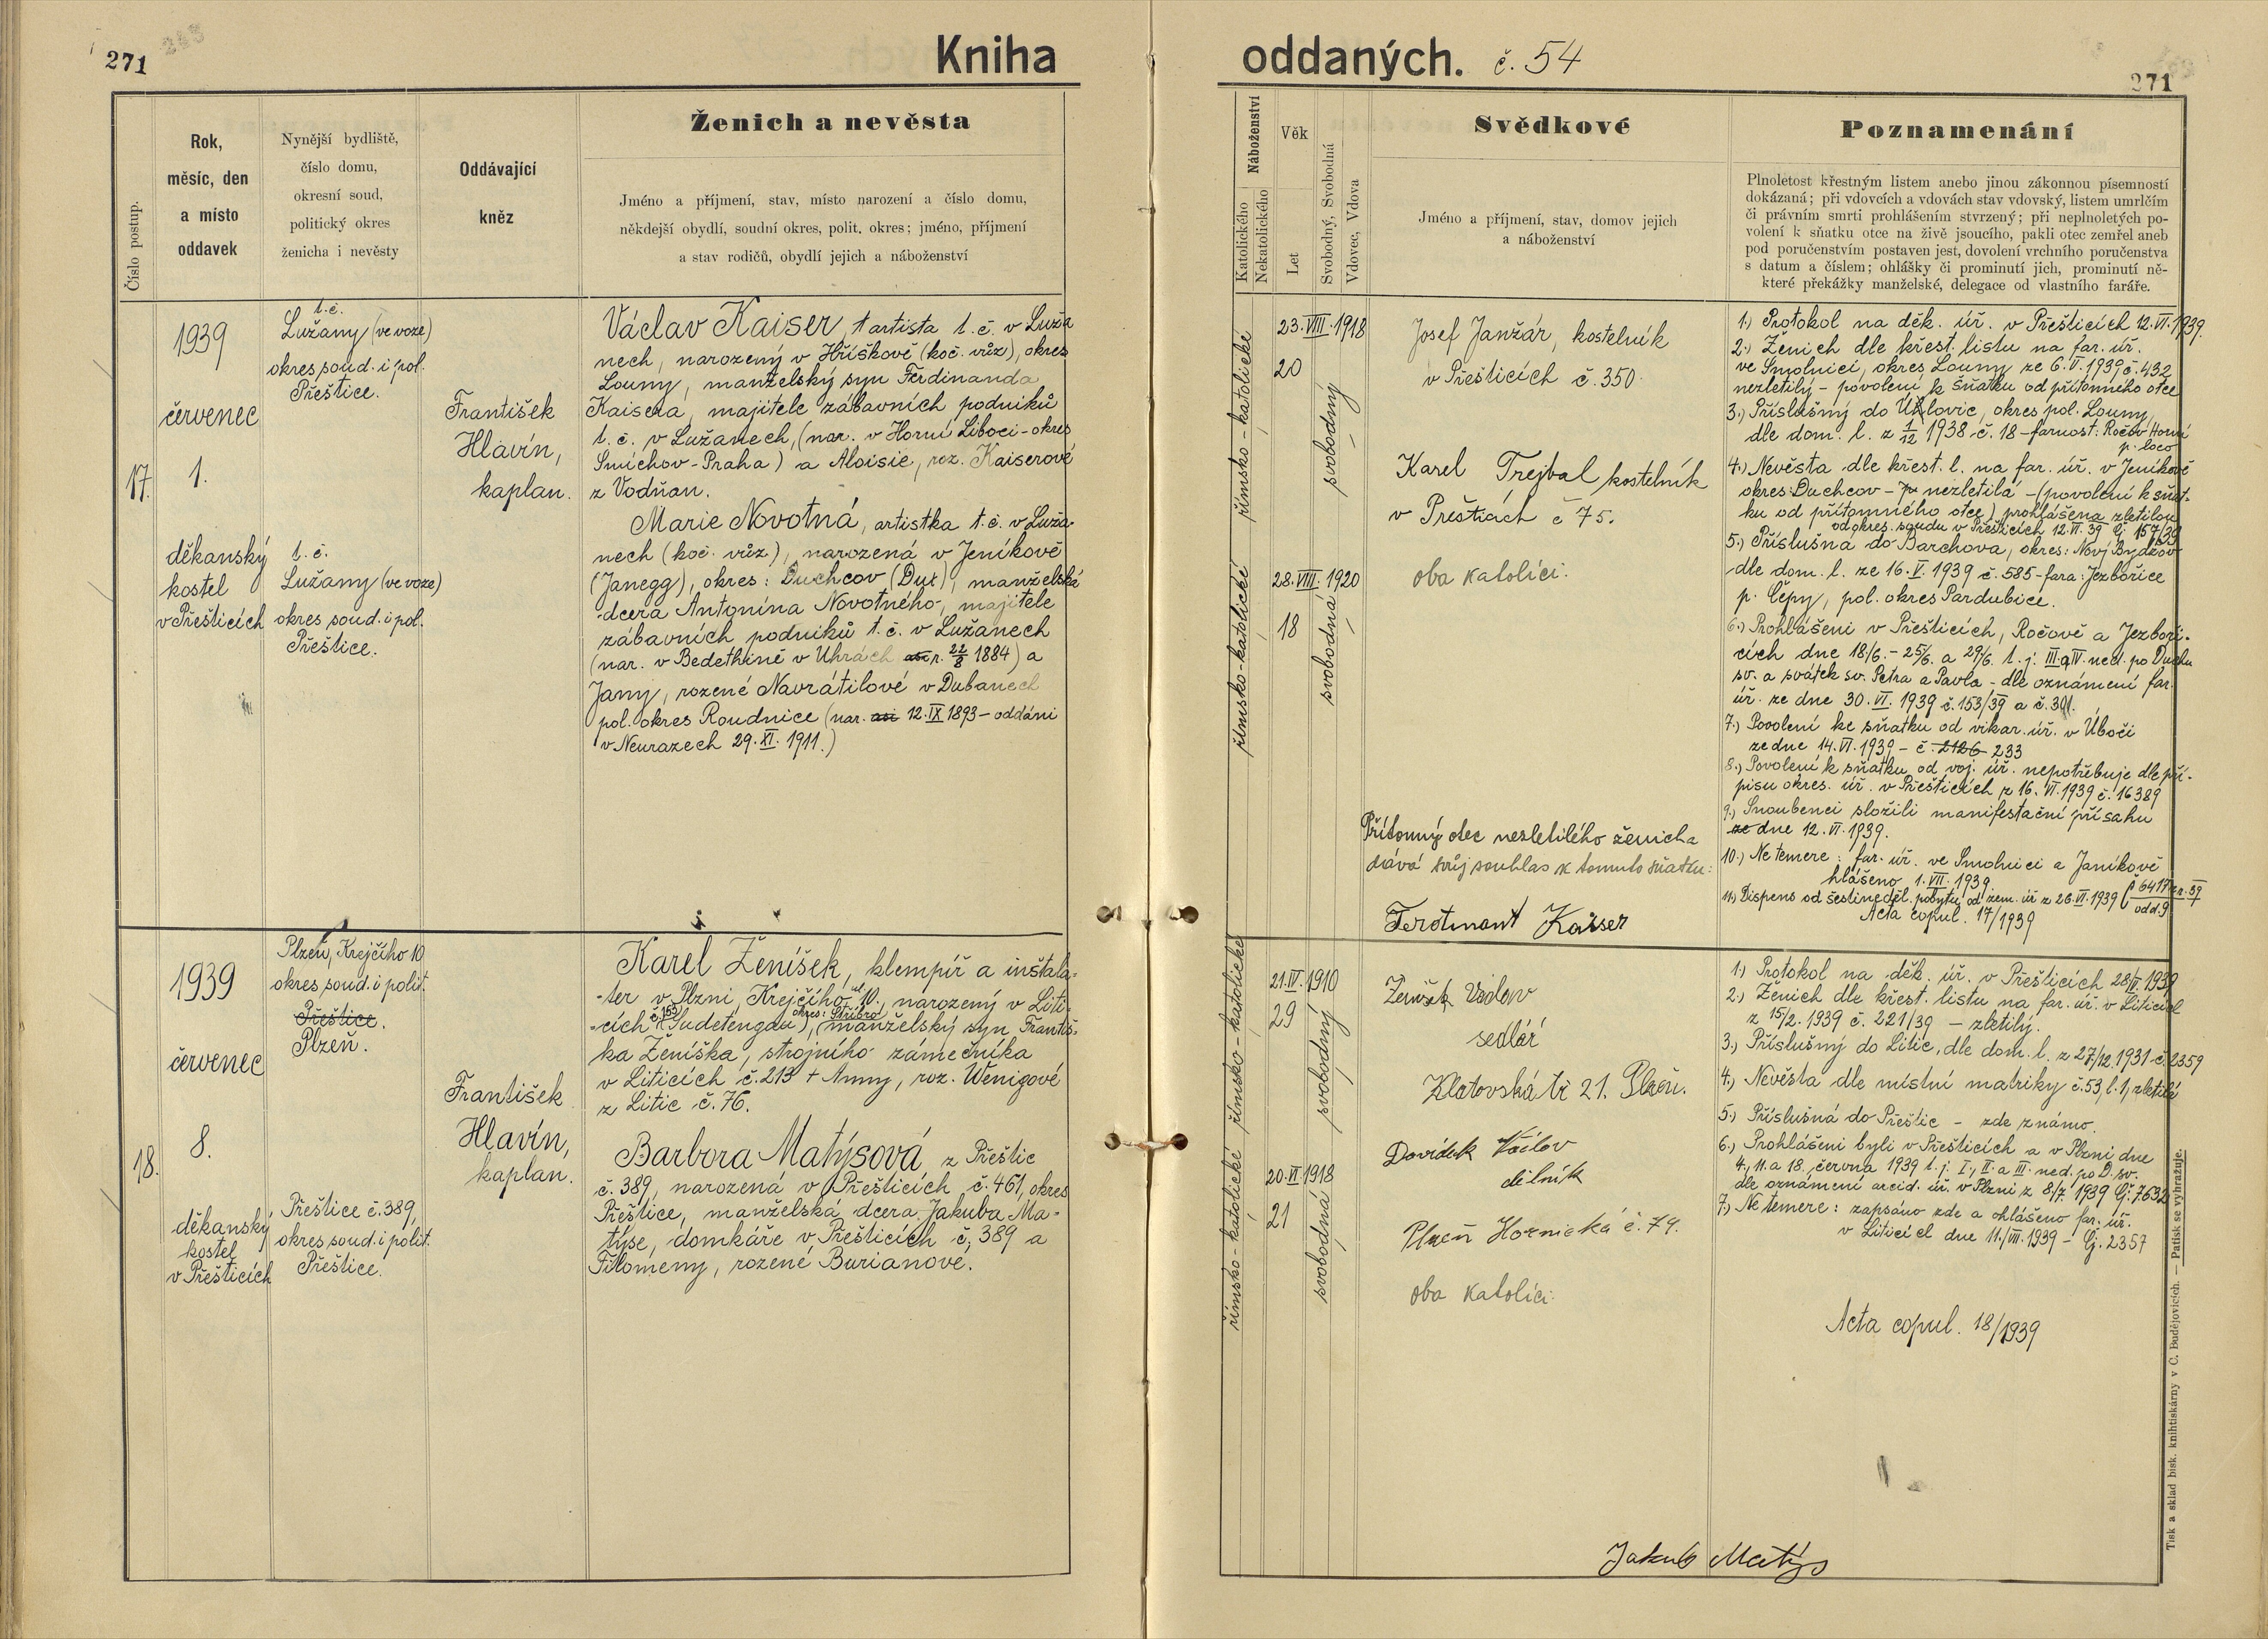 271
Kniha
Číslo postup.
Rok,
měsíc, den
a místo
oddavek
Nynější bydliště,
číslo domu,
okresní soud,
politický okres
ženicha i nevěsty
Oddávající
kněz
Ženich a nevěsta
Jméno a příjmení, stav, místo narození a číslo domu,
někdejší obydlí, soudní okres, polit. okres; jméno, příjmení
a stav rodičů, obydlí jejich a náboženství
17.
1939
červenec
1.
děkanský
kostel
v Přešticích
t. č.
Lužany (ve voze)
okres soud. i pol.
Přeštice.
t. č.
Lužany (ve voze)
okres soud. i pol.
Přeštice.
František
Hlavín,
kaplan.
Václav Kaiser, artista t. č. v Luža
nech, narozený v Hříškově (koč. vůz), okres
Louny, manželský syn Ferdinanda
Kaisera, majitele zábavních podniků
t. č. v Lužanech, (nar. v Horní Liboci - okres
Smíchov - Praha) a Aloisie, roz. Kaiserové
z Vodňan.
Marie Novotná, artistka t. č. v Luža-
nech (koč. vůz), narozená v Jeníkově
(Janegg), okres: Duchcov (Dux), manželská
dcera Antonína Novotného, majitele
zábavních podniků t. č. v Lužanech
(nar. v Bedethině v Uhrách asi r. 22/8 1884) a
Jany, rozené Navrátilové v Dubanech
pol. okres Roudnice (nar. asi 12. IX 1893 - oddáni
v Neurazech 29. XI. 1911.)
18.
1939
červenec
8.
děkanský
kostel
v Přešticích
Plzeň, Krejčího 10
okres soud. i polit.
Přeštice.
Plzeň.
Přeštice č. 389,
okres soud. i polit.
Přeštice.
František
Hlavín,
kaplan.
Karel Ženíšek, klempíř a inštala-
-ter v Plzni, Krejčího ul. 10., narozený v Liti-
-cích č. 153 (Sudetengau), okres: Stříbro manželský syn Františ-
ka Ženíška, strojního zámečníka
v Liticích č. 213 + Anny, roz. Wenigové
z Litic č. 76.
Barbora Matýsová, z Přeštic
č. 389, narozená v Přešticích č. 461, okres
Přeštice, manželská dcera Jakuba Ma-
týse, domkáře v Přešticích č. 389 a
Filomeny, rozené Burianové.
oddaných. č. 54
271
Náboženství
Katolického
Nekatolického
Věk
Let
Svobodný, Svobodná
Vdovec, Vdova
Svědkové
Jméno a příjmení, stav, domov jejich
a náboženství
Poznamenání
Plnoletost křestným listem anebo jinou zákonnou písemností
dokázaná; při vdovcích a vdovách stav vdovský, listem umrlčím
či právním smrti prohlášením stvrzený; při neplnoletých po-
volení k sňatku otce na živě jsoucího, pakli otec zemřel aneb
pod poručenstvím postaven jest, dovolení vrchního poručenstva
s datum a číslem; ohlášky či prominutí jich, prominutí ně-
které překážky manželské, delegace od vlastního faráře.
římsko-katolické
23. VIII. 1918
20
svobodný
římsko-katolické
28. VIII. 1920
18
svobodná
Josef Janžár, kostelník
v Přešticích č. 350.
Karel Trejbal kostelník
v č 75.
oba katolíci.
Přítomný otec nezletilého ženicha
dává svůj souhlas k tomuto sňatku:
Ferdinant Kaiser
1.) Protokol na děk. úř. v Přešticích 12. VI. 1939.
2.) Ženich dle křest. listu na far. úř.
ve Smolnici, okres Louny ze 6. VI. 1939 č. 432
nezletilý - povolení k sňatku od přítomného otce
3.) Příslušný do okres pol. Louny,
dle dom. l. z 1/12 1938 č. 18 - farnost: Ročov Horní
p. loco
4.) Nevěsta dle křest. l. na far. úř. v Jeníkově
okres: Duchcov - nezletilá - (povolení k sňat-
ku od přítomného otce) prohlášena zletilou
od okres. soudu v Přešticích 12. VI. 39 Čj 157/39
5.) Příslušná do Barchova, okres: Nový Bydžov
dle dom. l. ze 16. V. 1939 č. 585 - fara: Jezbořice
p. Čepy, pol. okres Pardubice.
6.) Prohlášeni v Přešticích, Ročově a Jezboři-
cích dne 18/6. - 25/6. a 29/6. t. j. III. a IV. ned. po Duchu
sv. a svátek sv. Petra a Pavla - dle oznámení far.
úř. ze dne 30. VI. 1939 č. 153/39 a č. 301.
7.) Povolení ke sňatku od vikar. úř. v Úboči
ze dne 14. VI. 1939 - č. 2126 233
8.) Povolení k sňatku od voj. úř. nepotřebuje dle pří-
pisu okres. úř. v Přešticích z 16. VI. 1939 č. 16389
9.) Snoubenci složili manifestační přísahu
ze dne 12. VI. 1939.
10.) Ne temere: far. úř. ve Smolnici a Janíkově
hlášeno 1. VII. 1939
11.) Dispens od šestineděl. pobytu od zem. úř z 26. VI. 1939
Acta copul. 17/1939
římsko-katolické
21. IV. 1910
29
svobodný
římsko-katolické
20. VI 1918
21
svobodná
sedlář
Klatovská tř 21. Plzeň.
Davídek
dělník
Plzeň Hornická č. 79.
oba katolíci.
1.) Protokol na děk. úř. v Přešticích 28/V. 1939
2.) Ženich dle křest. listu na far. úř. v Liticích
z 15/2. 1939 č. 221/39 - zletilý.
3.) Příslušný do Litic, dle dom. l. z 27./12. 1931 č. 2359
4.) Nevěsta dle místní matriky č. 53, l. 1, zletilá
5.) Příslušná do Přeštic - zde známo.
6.) Prohlášeni byli v Přešticích a v Plzni dne
4., 11. a 18. června 1939 t. j. I., II. a III. ned. po D. sv.
dle oznámení arcid. úř. v Plzni z 8/7. 1939 Čj. 7632
7.) Ne temere: zapsáno zde a ohlášeno far. úř.
v Liticích dne 11./VII. 1939 - Čj. 2357
Acta copul. 18/1939
Jakub Matýs
Tisk a sklad bisk. knihtiskárny v Č. Budějovicích. — Patisk se vyhražuje.